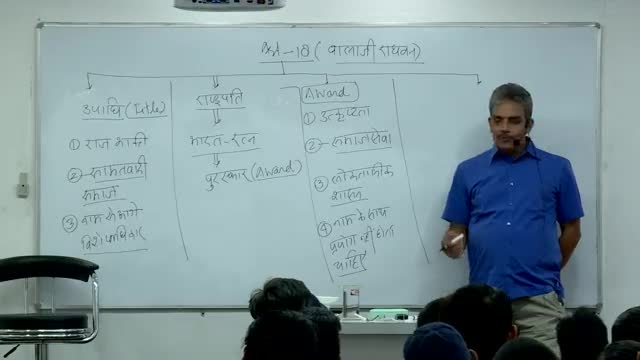 Art-18 (बालाजी राघवन)
उपाधि (Title)
① राज भक्ति
② सामंतवादी
समाज
③ नाम के आगे
राष्ट्रपति
भारत-रत्न
पुरस्कार (Award)
Award
① उत्कृष्टता
② समाजसेवा
③ लोकतांत्रिक
शासन
④ नाम के साथ
प्रयोग नहीं होना
चाहिए